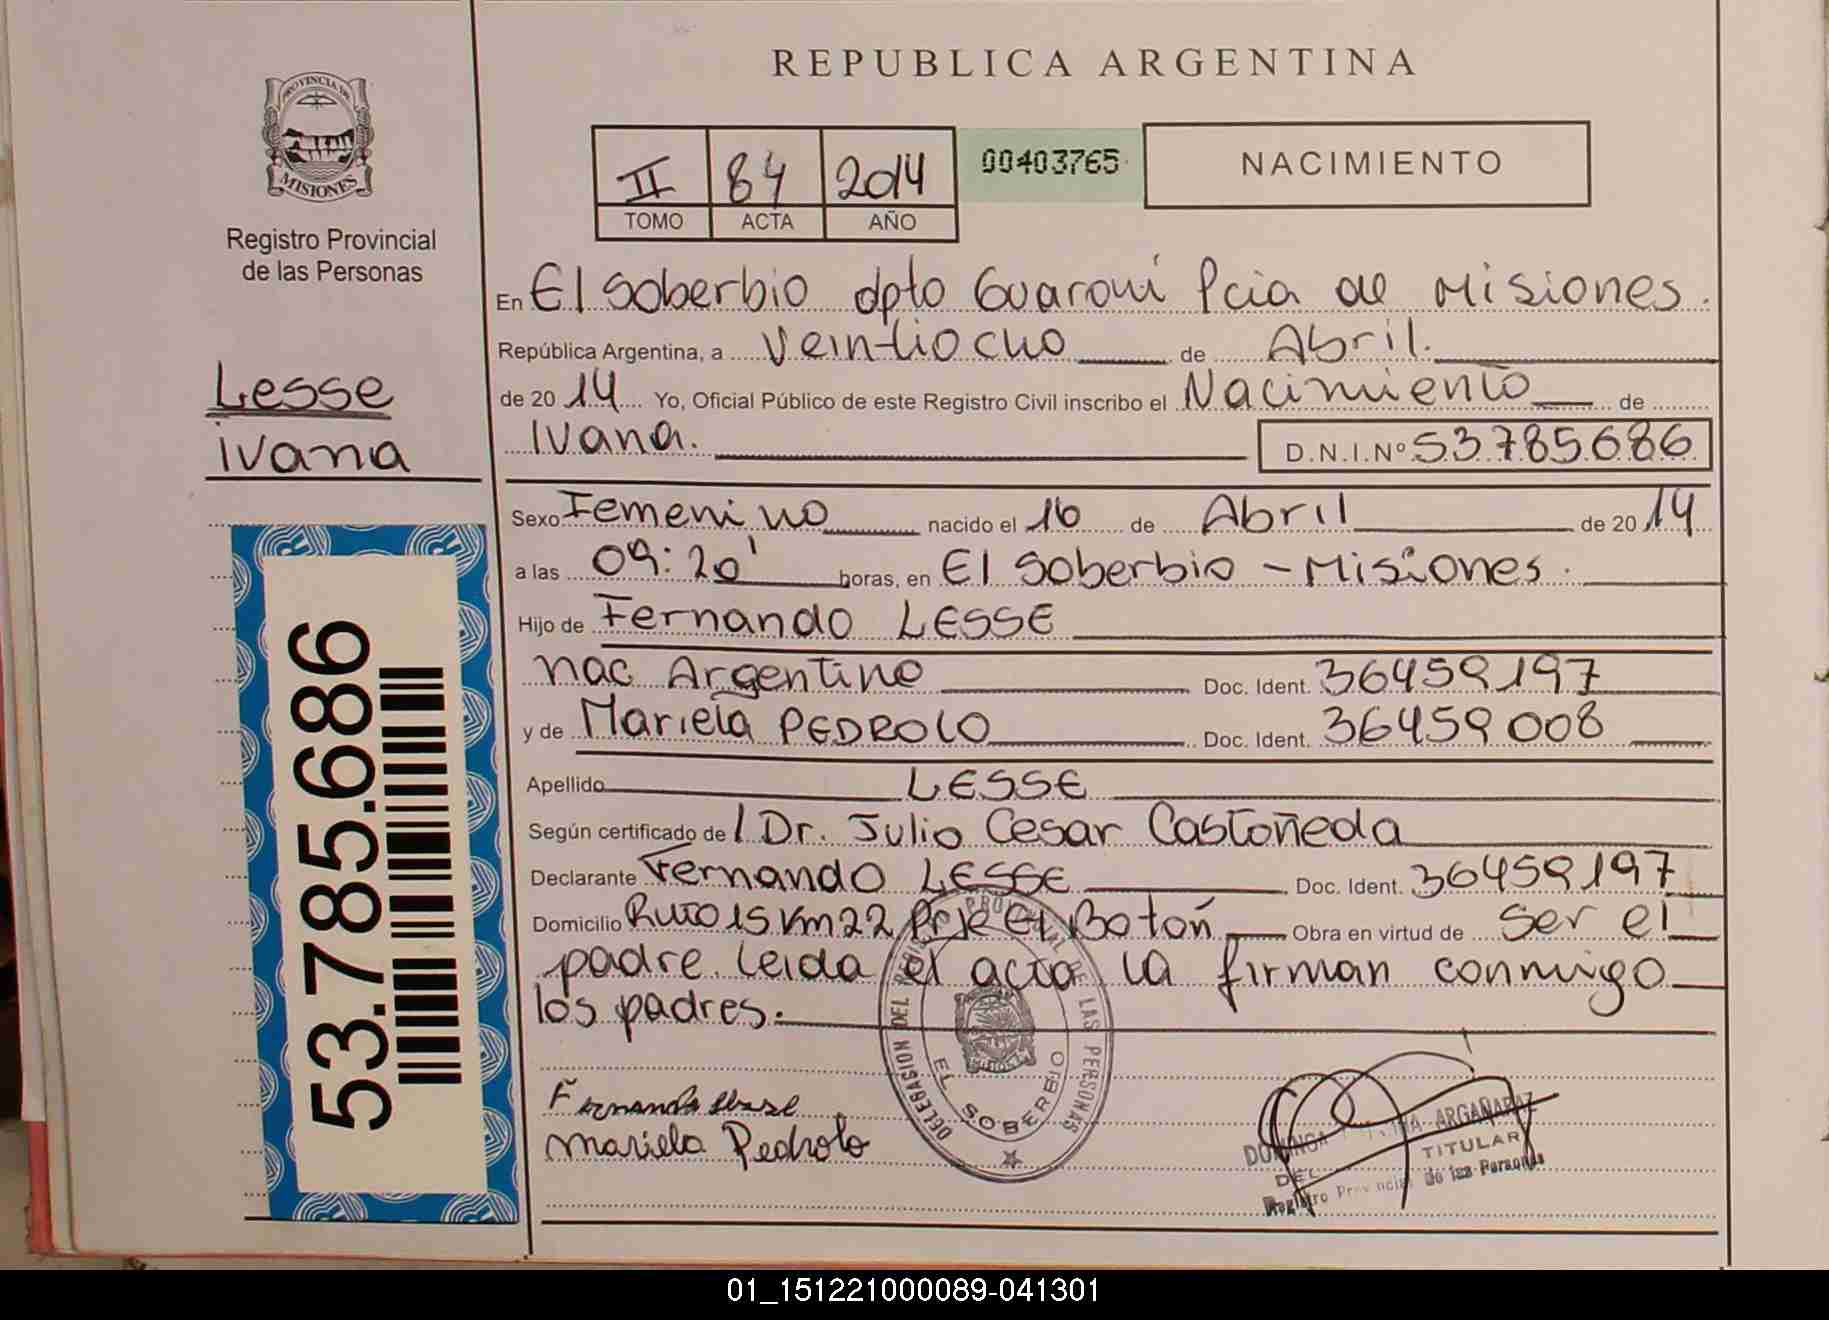 REPUBLICA ARGENTINA
PROVINCIA DE
MISIONES
Registro Provincial
de las Personas
II 84 2014
TOMO ACTA AÑO
00403765
NACIMIENTO
Lesse
ivana
53.785.686
En El Soberbio dpto Guaraní Pcia de Misiones.
República Argentina, a Veintiocho de Abril.
de 2014 Yo, Oficial Público de este Registro Civil inscribo el Nacimiento de
Ivana. D.N.I.Nº 53785686
Sexo Femenino nacido el 16 de Abril de 2014
a las 09:20' horas, en El Soberbio - Misiones.
Hijo de Fernando LESSE
nac Argentino Doc. Ident. 36459197
y de Mariela PEDROLO Doc. Ident. 36459008
Apellido LESSE
Según certificado de l Dr. Julio Cesar Castañeda
Declarante Fernando LESSE Doc. Ident. 36459197
Domicilio Ruta 15 Km 22 Prje El Botón Obra en virtud de ser el
padre. leida el acta la firman conmigo
los padres.
DELEGACION DEL PROVINCIAL DE LAS PERSONAS
EL SOBERBIO
Fernando lesse
mariela Pedrolo
ARGAÑARAZ
TITULAR
DEL
Registro Provincial de las Personas
01_151221000089-041301